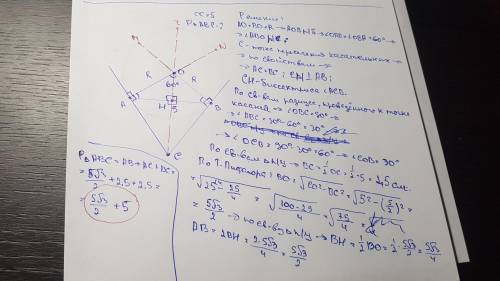 OC=5
PΔABC-?
Решение:
AO=BO=R → ΔAOB р/б → ∠OAB=∠OBA=60° →
C-точка пересечения касательных →
→ по свойствам →
→ AC=BC; CH⊥AB;
CH-биссектриса ∠ACB.
По св-вам радиуса, проведённого к точке
касания → ∠OBC=90° →
→ ∠HBC=90°-60°=30°
→ ∠OCB=90°-30°=60° → ∠COB=30°
По св-вам Δ п/у → BC=1/2 OC=1/2·5=2,5 см.
По Т. Пифагора: BO=√(CO²-BC²)=√(5²-(5/2)²)=
=√(25-25/4)=√((100-25)/4)=√(75/4)=
=5√3/2 → по св-ву Δ п/у → BH=1/2 BO=1/2·5√3/2=5√3/4
AB=2BH=2·5√3/4=5√3/2
M
N
O
R
R
60°
A
H
5
B
C
PΔABC=AB+AC+BC=
=5√3/2+2,5+2,5=
=5√3/2+5